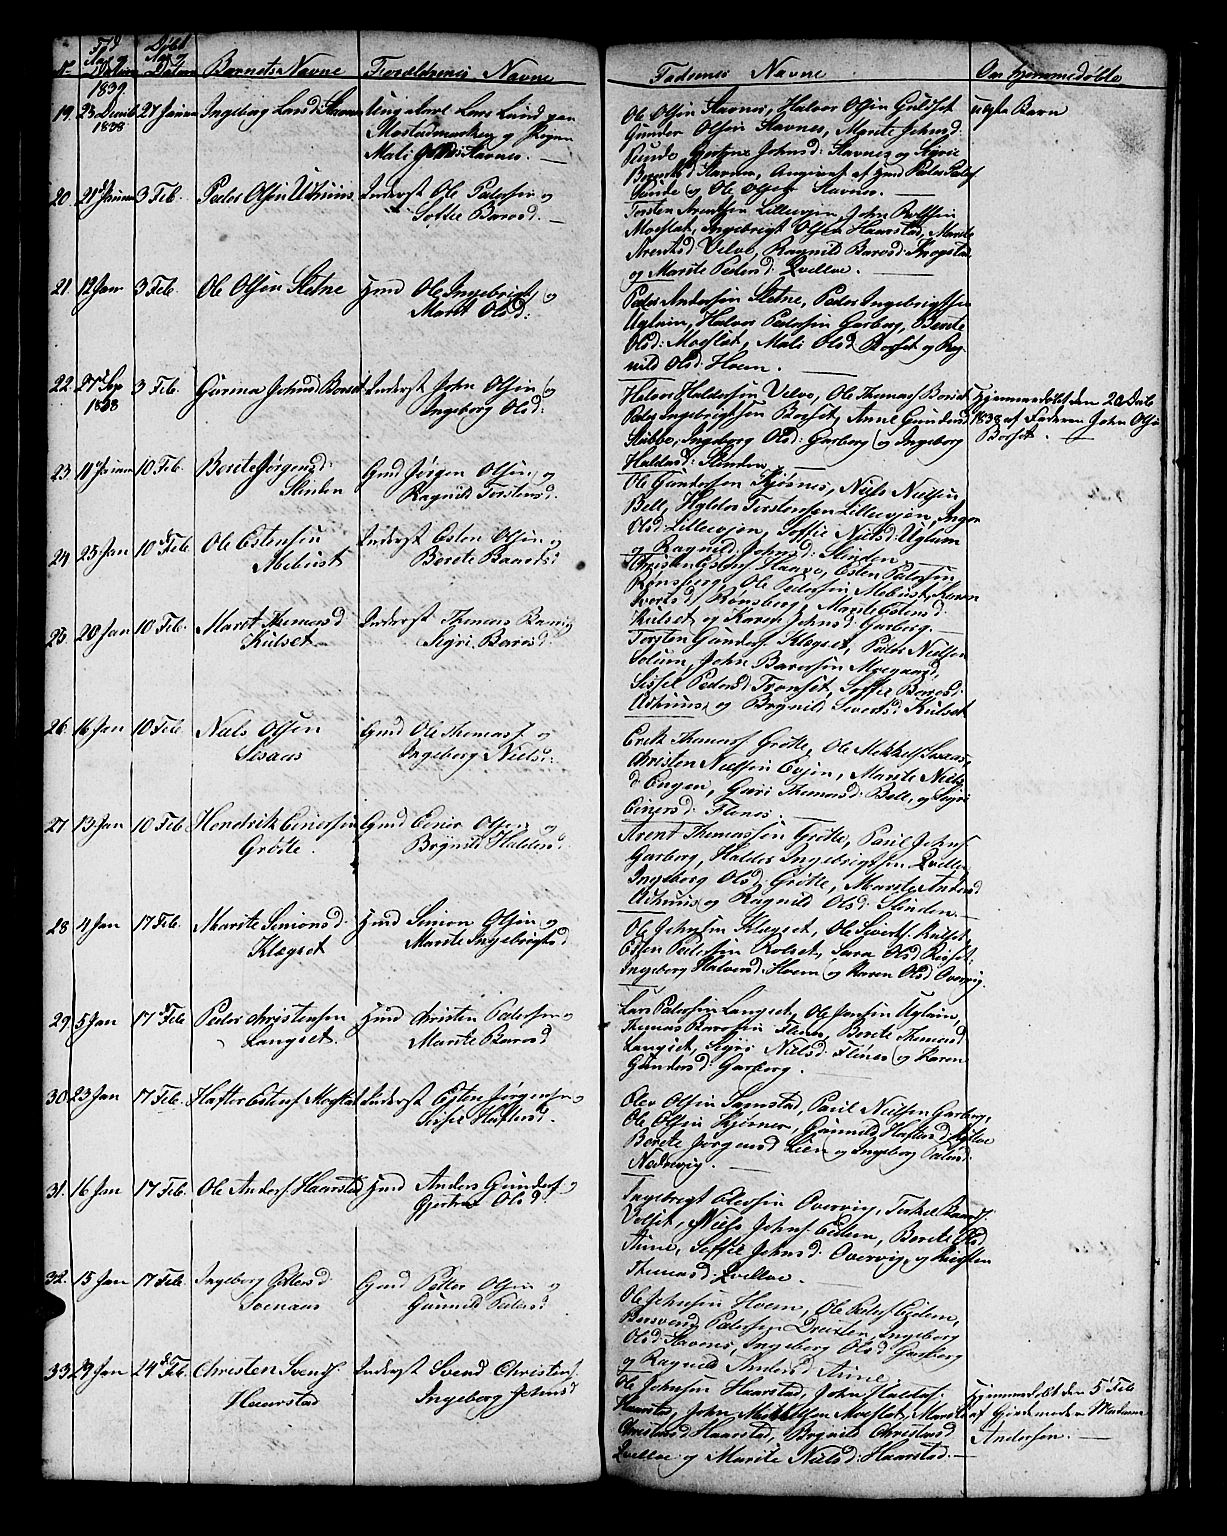 N.
Fød
Aar og
Datum
Døbt
Aar og
Datum
Barnets Navne
Forældrenes Navne
Fadernes Navne
Om hjemmedøbte
1839
19. 23 Decmb 1838
27 Januar
Ingeborg Larsd: Stavnes
Ungkarl Lars Lund paa
Mostadmarken og Pigen
Mali Stavnes. —
Ole Olsen Stavnes, Halvor Olsen Guldset
Gunder Olsen Stavnes, Marite Johnsd:
Gjertru Johnsd: Stavnes og Sigrie
Stavnes, Angivet af Gmd Peder Peders
og Ole Olsen Stavnes.
uægte Barn
20. 21 Januar
3 Feb.
Peder Olsen Ustuins
Inderst Ole Pedersen og
Soffie Barosd. —
Torsten Arentsen Lillevjen, John Rolfsen
Moeslet, Ingebrigt Olsen Haarstad, Marite
Arentsd Velve, Ragnild Barosd: Krogstad
og Marite Pedersd: Qvellve. —
21. 12 Jan
3 Feb.
Ole Olsen Sletne
Gmd Ole Ingebrigts og
Marit Olsd:
Peder Andersen Sletne, Peder Ingebrigtsen
Uglum, Halvor Pedersen Garberg, Berete
Olsd: Moeslet, Mali Olsd Borset og Rag
nild Olsd: Hoem. —
22. 27 Sep 1838
3 Feb.
Gunnia Johnsd Borset
Inderst John Olsen og
Ingeborg Olsd:
Haldersen Velve, Ole Thomass Borset
Peder Ingebrigtsen Borset, Anne Gundersd
Stubbe, Ingeborg Olsd: Garberg og Ingeborg
Haldersd: Slinden
Hjemmedøbt den 20 Decb
1838 af Faderen John Olsen
Borset. —
23. 11 Januar
10 Feb.
Berete Jørgensd:
Slinden
Gmd Jørgen Olsen og
Ragnild Torstensd.
Ole Gundersen Kjøsnes, Niels Nielsen
Bell, Halder Torstensen Lillevjen, Inger
Olsd: Lillevjen, Soffie Nielsd: Uglum
og Ragnild Johnsd: Slinden.
24. 25 Jan
10 Feb
Ole Estensen
Mebust
Inderst Esten Olsen og
Berete Baardsd
Christen Estens Haave, Esten Pedersen
Rønsberg, Ole Pedersen Mebust, Karen
Ivertsd Rønsberg, Marite Estensd:
Kulset og Karen Johnsd: Garberg. —
25. 20 Jan
10 Feb.
Marit Thomasd
Kulset
Inderst Thomas
Sigri Barosd.
Torsten Gunders Klegset, Peder Nielsen
Solum, John Barosen Moegaard,
Sissel Pedersd Tronset, Soffie Barosd:
Ustuns og Brynild Sivertsd: Kulset
26. 16 Jan
10 Feb
Niels Olsen
Sesaas
Gmd Ole Thomass og
Ingeborg Nielsd:
Erik Thomass Grøtte, Ole Mikkels Sesaas
Christen Nielsen Evjen, Marite Niels
d: Engen, Guri Thomasd: Bell, og Sigri
Einersd: Flenes.
27. 13 Jan
10 Feb
Hendrik Einersen
Grøtte.
Gmd Einer Olsen og
Brynild Haldersd:
Arent Thomassen Grøtte, Paul Johns
Garberg, Halder Ingebrigtsen Qvellve
Ingeborg Olsd: Grøtte, Marite Andersd
Ustuns og Ragnild Olsd: Slinden. —
28. 4 Jan
17 Feb.
Marite Simonsd:
Klegset
Gmd Simon Olsen og
Marite Ingebrigtsd
Ole Johnsen Klegset, Ole Sivertss Kulset
Esten Pedersen Rolset, Sara Olsd
Ingeborg Halvorsd: Hoem og Karen Olsd Overvig.
29. 5 Jan
17 Feb
Peder Christensen
Langset.
Gmd Christen Pedersen og
Marite Barosd
Lars Pedersen Langset, Ole Jensen Uglum,
Thomas Barosen Flenes, Berete Thomasd
Langset, Sigri Nielsd. Flenes og Karen
Gundersd: Garberg.
30. 23 Jan
17 Feb.
Hafter Estens Moslet
Inderst Esten Jørgensen og
Sissel Haftersd.
Olev Olsen Samstad, Paul Nielsen Garberg,
Ole Olsen Kjøsnes, Gunnild Haftersd Kylloe
Berete Jørgensd Lien og Ingeborg
Nedrevig. —
31. 16 Jan
17 Feb.
Ole Anders Haarstad
Gmd Anders Gunders og
Gjertru Olsd.
Ingebrigt Olessen Overvig, Torkel Baards
Velset, Niels Johns Eidem, Berete Olsd
Aune, Soffie Johnsd: Overvig, og Kirsten
Thomasd: Qvellve.
32. 15 Jan
17 Feb
Ingeborg Pettersd:
Svenaas
Gmd Petter Olsen og
Gunnild Pedersd
Ole Johnsen Hoem, Ole Peders Eidem,
Bersvend Pedersen Draxten, Ingeborg
Olsd: Stavnes, Ingeborg Olsd Garberg
og Ragnild Andersd Aune.
33. 19 Jan
24 Feb.
Christen Svends
Haarstad
Inderst Svend Christens
Ingeborg Johnsd
Ole Johnsen Haarstad, John Halders:
Haarstad, John Mikkelsen Moeslet, Marite
Christensd Haarstad, Brynild Christensd
Qvellve og Marite Nielsd: Haarstad. —
Hjemmedøbt den 5 Feb
af Gjordemoderen
Andersen. —